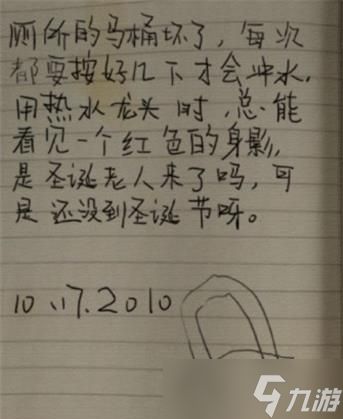 厕所的马桶坏了，每次
都要按好几下才会冲水，
用热水龙头时，总能
看见一个红色的身影，
是圣诞老人来了吗，可
是还没到圣诞节呀。
10.17.2010
九游